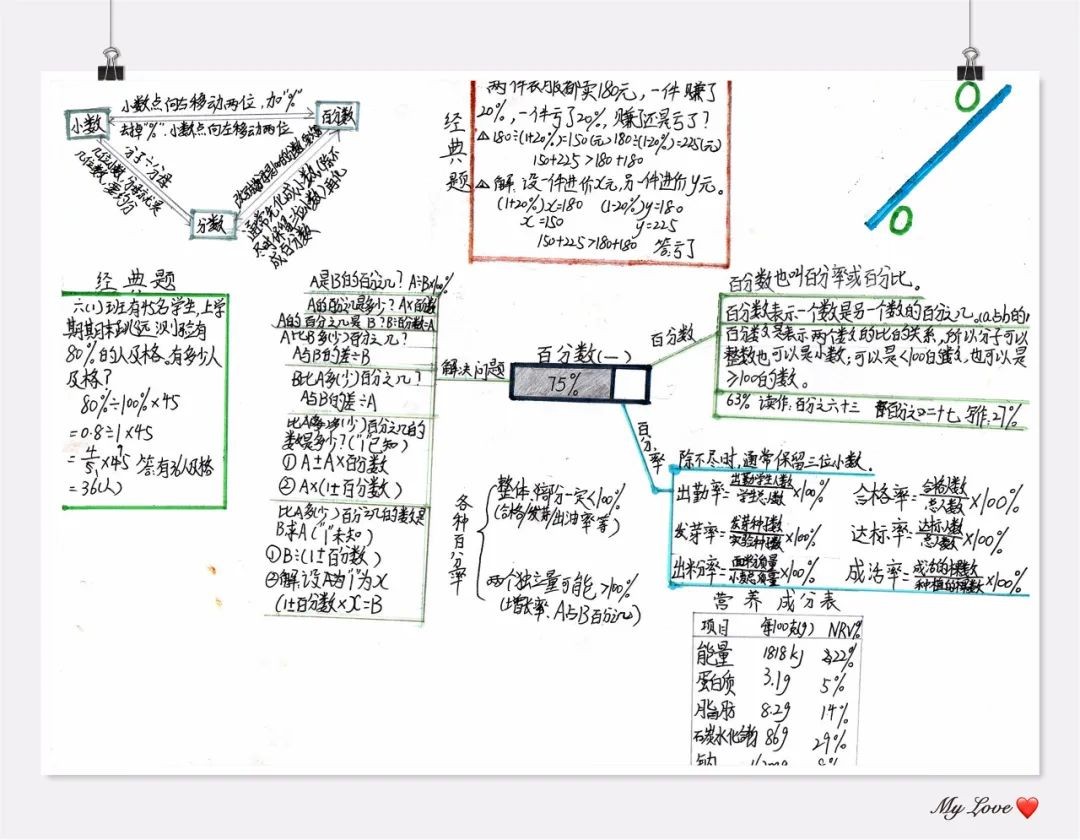 小数点向右移动两位,加"%"
小数
百分数
去掉"%",小数点向左移动两位
分子÷分母
分数
通常先化成小数(除不
尽时保留三位小数)再化
成百分数
经典题
两件衣服都卖180元,一件赚了
20%,一件亏了20%,赚了还是亏了?
△180÷(1+20%)=150(元)180÷(1-20%)=225(元)
150+225>180+180
△解:设一件进价x元,另一件进价y元。
(1+20%)x=180 (1-20%)y=180
x=150 y=225
150+225>180+180 答:亏了
经典题
六(1)班有45名学生,上学
期期末测验有
80%的人及格。有多少人
及格?
80%÷100%×45
=0.8÷1×45
=4/5×45 答:有36人及格
=36(人)
A是B的百分之几?A÷B×100%
A的百分之几是多少?A×百分数
A的百分之几是B?B÷百分数=A
A比B多(少)百分之几?
A与B的差÷B
B比A多(少)百分之几?
A与B的差÷A
比A多(少)百分之几的
数是多少?("1"已知)
①A±A×百分数
②A×(1±百分数)
比A多(少)百分之几的数是
B求A("1"未知)
①B÷(1±百分数)
②解:设A为"1"为x
(1±百分数×x=B
解决问题
百分数(一)
75%
百分数
百分数也叫百分率或百分比。
百分数表示一个数是另一个数的百分之几。(a与b的)
百分数是表示两个数的比的关系,所以分子可以
整数也可以是小数;可以是<100的数,也可以是
≥100的数。
63% 读作:百分之六十三 百分之二十七,写作:27%
百分率
除不尽时,通常保留三位小数。
出勤率=出勤学生人数/学生总人数×100% 合格率=合格人数/总人数×100%
发芽率=发芽种子数/实验种子数×100% 达标率=达标人数/总人数×100%
出粉率=面粉质量/小麦总质量×100% 成活率=成活的棵数/种植的棵数×100%
各种百分率
整体,部分一定<100%
(合格/发芽/出油率等)
两个独立量可能>100%
(增长率、A与B百分之几)
营养成分表
项目 每100克(g) NRV%
能量 1818kJ 22%
蛋白质 3.1g 5%
脂肪 8.2g 14%
碳水化合物 86g 29%
钠
My Love